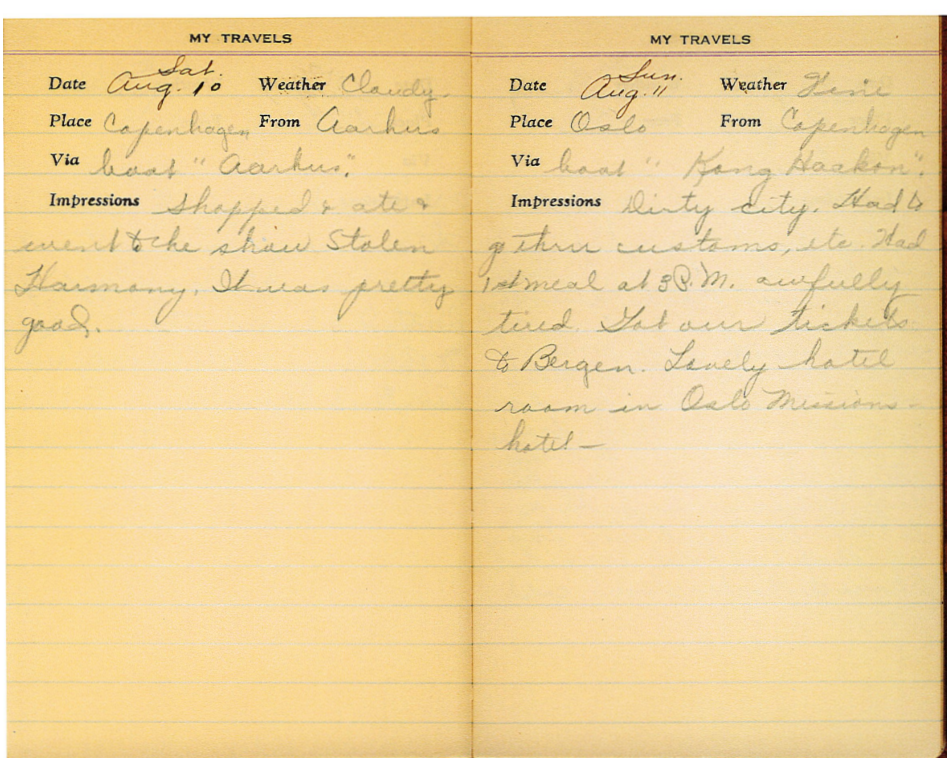 MY TRAVELS
Sat.
Date Aug. 10 Weather Cloudy.
Place Copenhagen From Aarhus
Via boat "Aarhus".
Impressions Shopped & ate &
went to the show Stolen
Harmony. It was pretty
good.
MY TRAVELS
Sun.
Date Aug. 11 Weather Fine
Place Oslo From Copenhagen
Via boat "Kong Haakon".
Impressions Dirty city. Had to
go thru customs, etc. Had
1st meal at 3 P.M. awfully
tired. Got our tickets
to Bergen. Lovely hotel
room in Oslo Missions-
hotel—